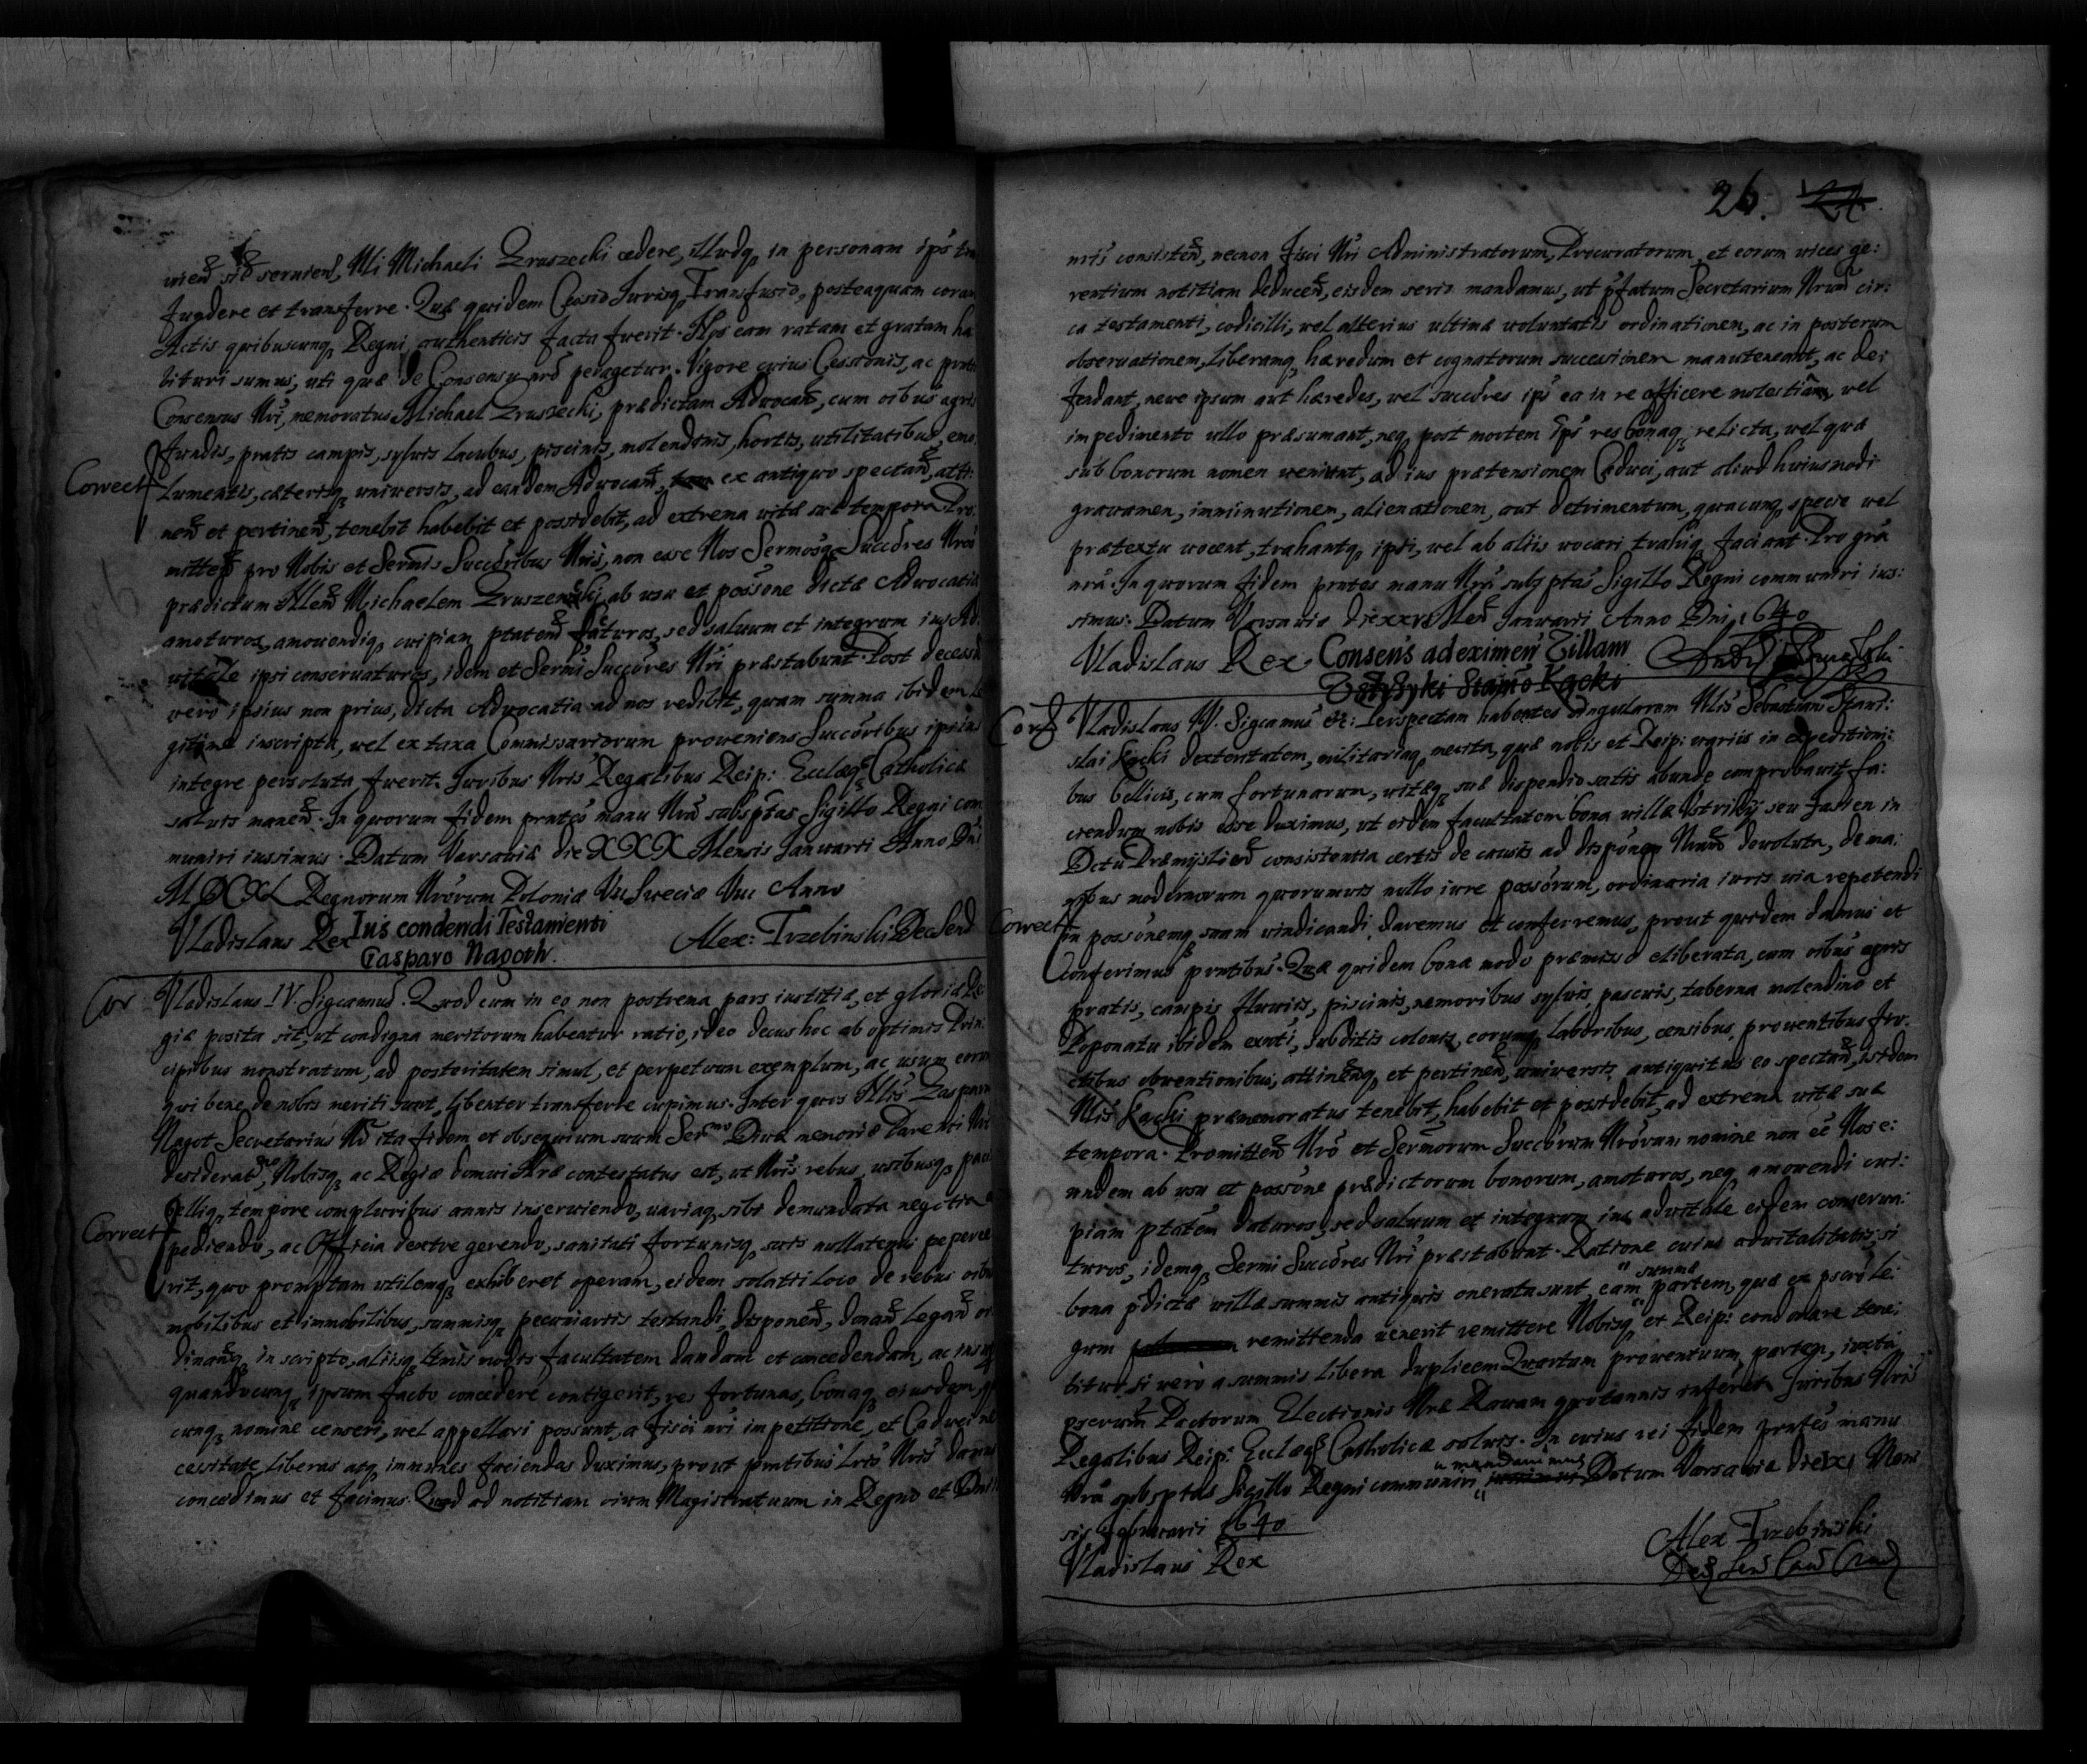 uien sib seruien, Nli Michaeli Zruszecki cedere, illudq in personam ips
fundere et transferre. Quæ quidem Cessio Jurisq Transfusio, posteaquam coram
Actis quibuscunq Regni authenticis facta fuerit. Nos eam ratam et gratam ha
bituri sumus, uti quæ de Consensu nro peragetur. Vigore cuius Cessionis, ac
Consensus Nri, memoratus Michael Zruszecki, prædictam Aduocan, cum oibus agris
fundis, pratis campis, syluis lacubus, piscinis, molendinis, hortis, utilitatibus, emo
Correct
lumentis, cæterisq uniuersis, ad eandem Aduocan, ex antiquo spectan, atti
nen et pertinen, tenebit habebit et possidebit, ad extrema vitæ suæ tempora Pro
mitten pro Nobis et Sermis Succoribus Nris, non esse Nos Sermosq Succores Nros
prædictum Michaelem ab usu et possone dictæ Aduocatiæ
amoturos, amouendiq cuipiam ptatem daturos, sed saluum et integrum ius Ad
vitale ipsi conseruaturos, idem et Sermi Succores Nri præstabunt. Post decessum
vero ipsius non prius, dicta Aduocatia ad nos redibit, quam summa ibidem le
gitime inscripta, vel ex taxa Commissariorum proueniens Succoribus ipsius
integre persoluta fuerit. Juribus Nris Regalibus Reip: Ecclæq Catholicæ
saluis manen. In quorum fidem pntes manu Nra subsptas Sigillo Regni com
muniri iussimus. Datum Varsauiæ die XXX Mensis Januarii Anno Dni
MDCXL Regnorum Nrorum Poloniæ VII Sueciæ VIII Anno
Vladislaus Rex
Ius condendi Testamenti
Gasparo Nagoth.
Alex: Trzebinski
Cor
Vladislaus IV. Sigcamus. Quod cum in eo non postrema pars iustitiæ, et gloriæ Re
giæ posita sit, ut condigna meritorum habeatur ratio, ideo decus hoc ab optimis Prin
cipibus monstratum, ad posteritatem simul, et perpetuum exemplum, ac usum eorum
qui bene de nobis meriti sunt, libenter transferre cupimus. Inter quos Nlis Gaspar
Nagot Secretarius Nr ita fidem et obsequium suum Sermo Diuæ memoriæ Parenti Nro
desideratmo, Nobisq ac Regiæ domui Nræ contestatus est, ut Nris rebus, usibusq pacis
belliq tempore compluribus annis inseruiendo, uariaq sibi demandata negotia
Correct
pediendo, ac Officia dextre gerendo, sanitati fortunisq suis nullatenus peperce
rit, quo promptam utilemq exhiberet operam, eidem solatii loco de rebus oibus
mobilibus et immobilibus, summisq pecuniariis testandi, disponen, donan legan or
dinanq in scripto, aliisq ltmis modis facultatem dandam et concedendam, ac
quandocunq ipsum facto concedere contigerit, res fortunas, bonaq eiusdem
cunq nomine censeri, vel appellari possunt, a fisci nri impetitione, et Caduci ne
cessitate liberas atq immunes faciendas duximus, prout pntibus Lris Nris damus
concedimus et facimus. Quod ad notitiam oium Magistratuum in Regno et
26. 24
nris consisten, necnon fisci Nri Administratorum, Procuratorum, et eorum uices ge:
rentium notitiam deducen, eisdem serio mandamus, ut pfatum Secretarium Nrum cir:
ca testamenti, codicilli, vel alterius ultimæ voluntatis ordinationem, ac in posterum
obseruationem, liberamq hæredum et cognatorum successionem manuteneant, ac de:
fendant, neue ipsum aut hæredes, vel succores ips ea in re afficere molestiam, vel
impedimento ullo præsumant, neq post mortem ips res bonaq relicta, vel quæ
sub bonorum nomen ueniunt, ad ius prætensionem Caduci, aut aliud huiusmodi
grauamen, imminutionem, alienationem, aut detrimentum, quacunq specie vel
prætextu uocent, trahantq ipsi, vel ab aliis uocari trahiq faciant. Pro gra
nra. In quorum fidem pntes manu Nra subsptas Sigillo Regni communiri ius:
simus. Datum Varsauiæ die Men Januarii Anno Dni 1640
Vladislaus Rex
Consens ad eximen Villam
Stanio Kacki
Cor
Vladislaus IV. Sigcamus etc: Perspectam habentes singularem Nlis Sebastiani Stani:
slai Kacki dexteritatem, militariaq merita, quæ nobis et Reip: uariis in expeditioni:
bus bellicis, cum fortunarum, vitæq suæ dispendio satis abunde comprobauit, fa:
ciendum nobis esse duximus, ut eidem facultatem bona villæ seu in
Dctu Præmyslien consistentia certis de causis ad disponem Nram deuoluta, de ma:
nibus modernorum quorumuis nullo iure possorum, ordinaria iuris uia repetendi
Correct
in possonemq suam uindicandi daremus et conferremus, prout quidem damus et
conferimus pntibus. Quæ quidem bona modo præmisso eliberata, cum oibus agris
pratis, campis fluuiis, piscinis, nemoribus syluis, pascuis, taberna molendino et
Poponatu ibidem subditis colonis, eorumq laboribus, censibus, prouentibus fru:
ctibus obuentionibus, attinenq et pertinen, uniuersis antiquitus eo spectan, isdem
Nlis Kacki præmemoratus tenebit, habebit et possidebit, ad extrema vitæ suæ
tempora. Promitten Nro et Sermorum Succorum Nrorum nomine non ee Nos e:
undem ab usu et possone prædictorum bonorum, amoturos, neq amouendi cui:
piam ptatem daturos, sed saluum et integrum ius aduitale eidem conserua:
turos, idemq Sermi Succores Nri præstabunt. Ratione cuius aduitalitatis, si
bona pdictæ villæ summis antiquis onerata sunt, eam summæ partem, quæ ex pscro le:
gum remittenda uenerit remittere Nobisq et Reip: condonare tene:
bitur, si vero a summis libera duplicem Quartam prouentuum partem, iuxta
pscrum Pactorum Electionis Nræ Rauam quotannis inferet. Juribus Nris
Regalibus Reip: Ecclæq Catholicæ saluis. In cuius rei fidem pntes manu
Nra subsptas Sigillo Regni communiri mandauimus Datum Varsauiæ die Men
sis Februarii 1640
Vladislaus Rex
Alex Trzebinski